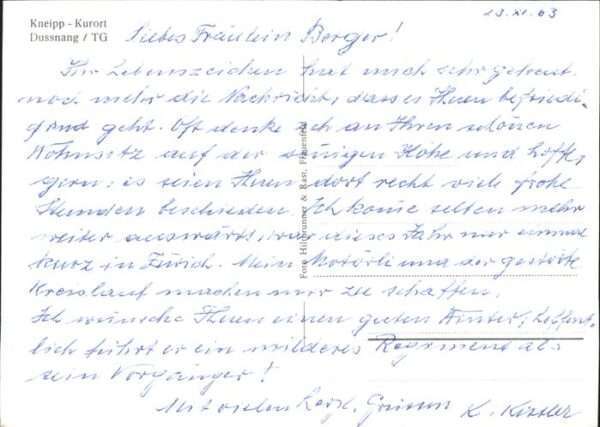 Kneipp - Kurort
Dussnang / TG
23. XI. 63
Liebes Fräulein Berger!
Ihr Lebenszeichen hat mich sehr gefreut
noch mehr die Nachricht, dass es Ihnen befriedi-
gend geht. Oft denke ich an Ihren schönen
Wohnsitz auf der sonnigen Höhe und hoffe
gern: es seien Ihnen dort recht viele frohe
Stunden beschieden. Ich komme selten mehr
weiter auswärts, war dieses Jahr nur einmal
kurz in Zürich. Mein Motörli und der gestörte
Kreislauf machen mir zu schaffen.
Ich wünsche Ihnen einen guten Winter, hoffent-
lich führt er ein milderes Regiment als
sein Vorgänger!
Mit vielen herzl. Grüssen K. Kessler
Foto Hilfbrunner & Rast, Frauenfeld